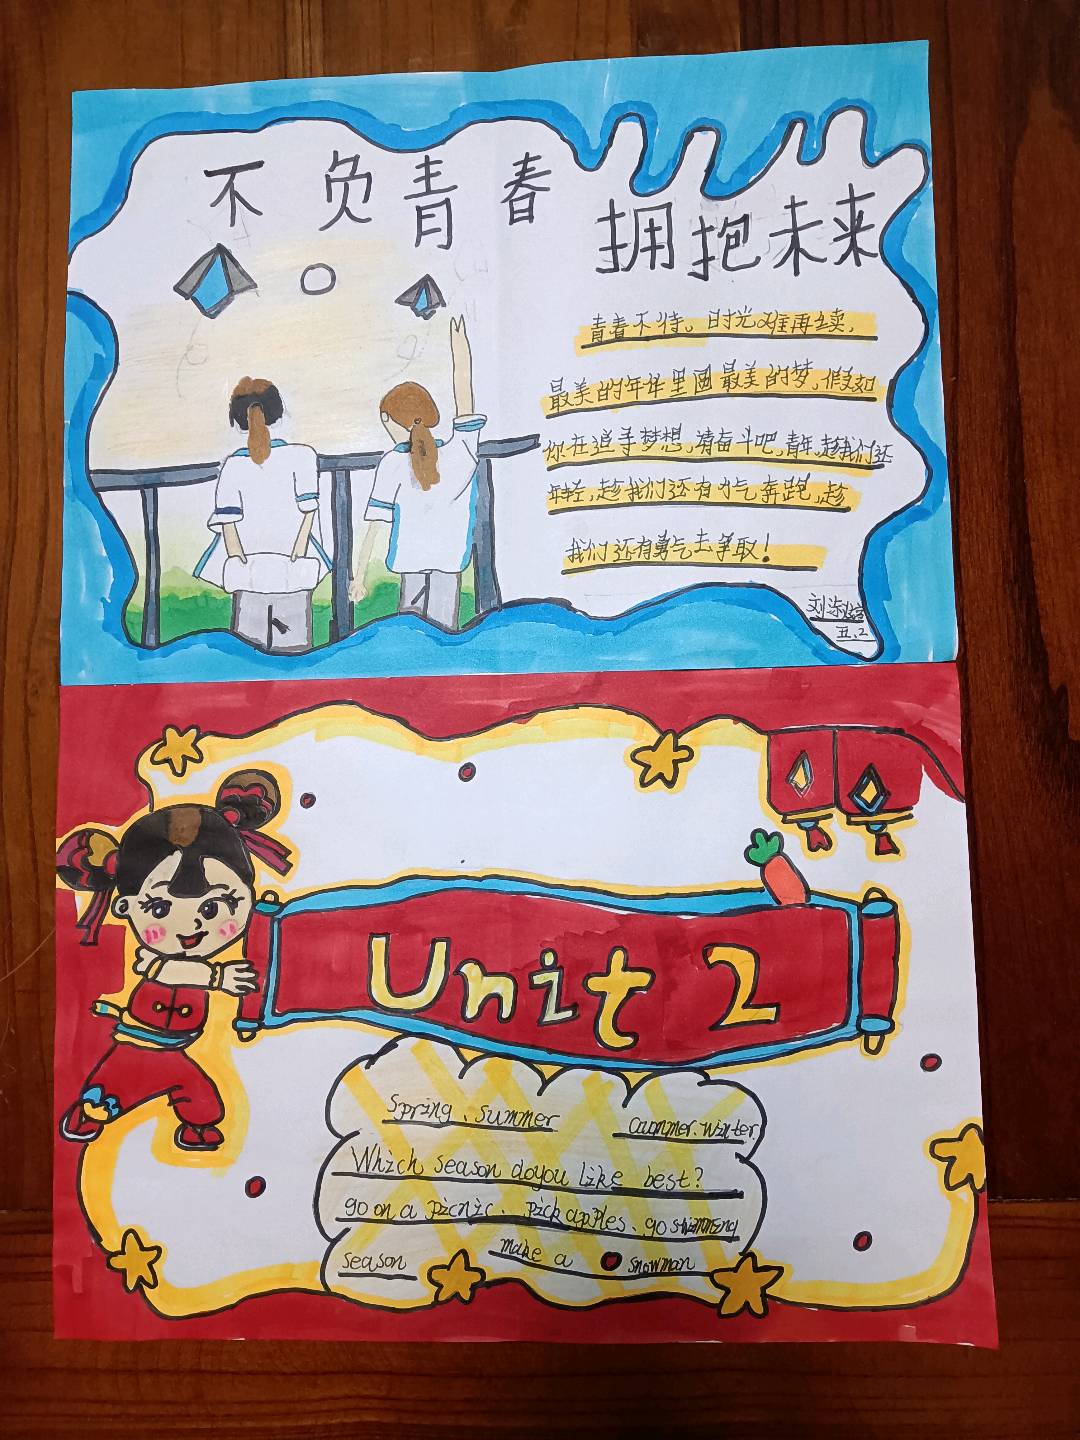 不负青春
拥抱未来
青春不待。时光难再续，
最美的年华里圆最美的梦，假如
你在追寻梦想，请奋斗吧，青年，趁我们还
年轻，趁我们还有力气奔跑，趁
我们还有勇气去争取！
刘
五.2
Unit 2
Spring、summer
Cummer.Winter.
Which season do you like best?
go on a picnic. pick apples. go
season make a snowman